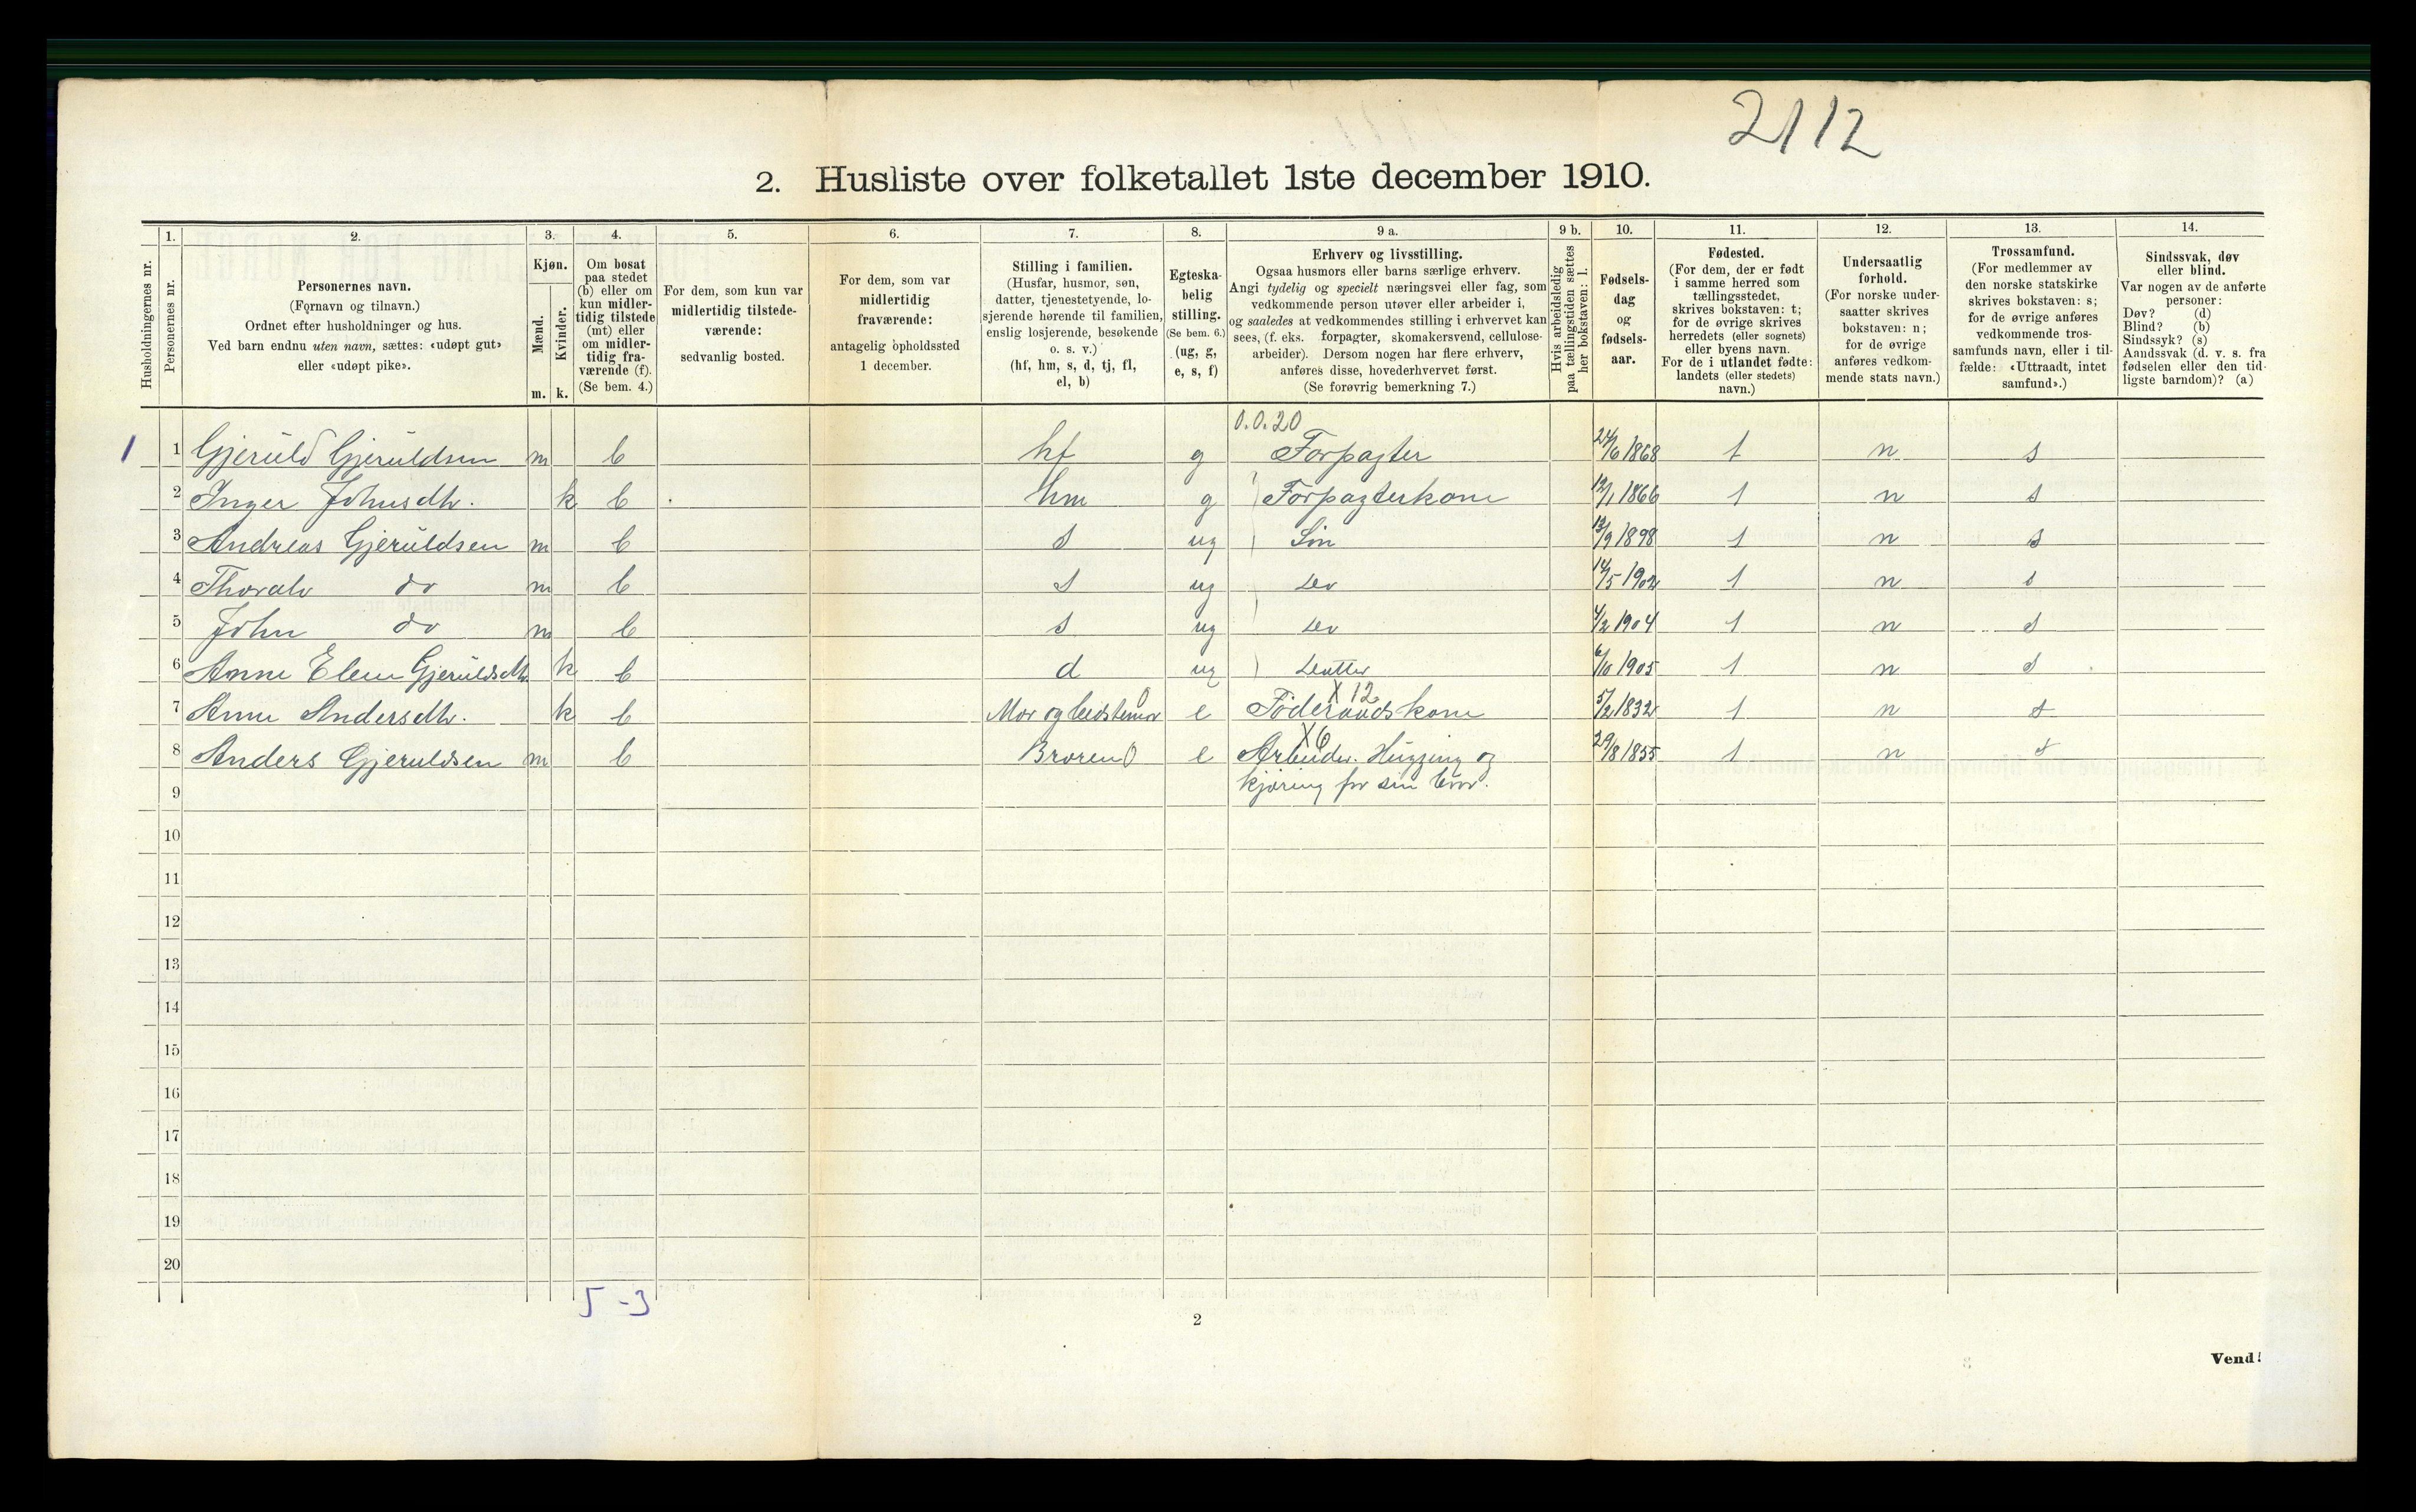 2112
2. Husliste over folketallet 1ste december 1910.
Husholdningernes nr.
1.
Personernes nr.
2.
Personernes navn.
(Fornavn og tilnavn.)
Ordnet efter husholdninger og hus.
Ved barn endnu uten navn, sættes: «udøpt gut»
eller «udøpt pike».
3.
Kjøn.
Mænd.
Kvinder.
m. k.
4.
Om bosat
paa stedet
(b) eller om
kun midler-
tidig tilstede
(mt) eller
om midler-
tidig fra-
værende (f).
(Se bem. 4.)
5.
For dem, som kun var
midlertidig tilstede-
værende:
sedvanlig bosted.
6.
For dem, som var
midlertidig
fraværende:
antagelig opholdssted
1 december.
7.
Stilling i familien.
(Husfar, husmor, søn,
datter, tjenestetyende, lo-
sjerende hørende til familien,
enslig losjerende, besøkende
o. s. v.)
(hf, hm, s, d, tj, fl,
el, b)
8.
Egteska-
belig
stilling.
(Se bem. 6.)
(ug, g,
e, s, f)
9 a.
Erhverv og livsstilling.
Ogsaa husmors eller barns særlige erhverv.
Angi tydelig og specielt næringsvei eller fag, som
vedkommende person utøver eller arbeider i,
og saaledes at vedkommendes stilling i erhvervet kan
sees, (f. eks. forpagter, skomakersvend, cellulose-
arbeider). Dersom nogen har flere erhverv,
anføres disse, hovederhvervet først.
(Se forøvrig bemerkning 7.)
9 b.
Hvis arbeidsledig
paa tællingstiden sættes
her bokstaven: l.
10.
Fødsels-
dag
og
fødsels-
aar.
11.
Fødested.
(For dem, der er født
i samme herred som
tællingsstedet,
skrives bokstaven: t;
for de øvrige skrives
herredets (eller sognets)
eller byens navn.
For de i utlandet fødte:
landets (eller stedets)
navn.)
12.
Undersaatlig
forhold.
(For norske under-
saatter skrives
bokstaven: n;
for de øvrige
anføres vedkom-
mende stats navn.)
13.
Trossamfund.
(For medlemmer av
den norske statskirke
skrives bokstaven: s;
for de øvrige anføres
vedkommende tros-
samfunds navn, eller i til-
fælde: «Uttraadt, intet
samfund».)
14.
Sindssvak, døv
eller blind.
Var nogen av de anførte
personer:
Døv? (d)
Blind? (b)
Sindssyk? (s)
Aandssvak (d. v. s. fra
fødselen eller den tid-
ligste barndom)? (a)
0.0.20
1 1 Gjeruld Gjeruldsen m b hf g Forpagter 24/6 1868 t n s
2 Inger Johnsdtr. k b hm g Forpagterkone 12/1 1866 t n s
3 Andreas Gjeruldsen m b s ug Sön 13/9 1898 t n s
4 Thoralv do m b s ug do 14/5 1902 t n s
5 John do m b s ug do 4/2 1904 t n s
6 Anne Elen Gjeruldsdtr. k b d ug Datter 6/10 1905 t n s
X 12
7 Anne Andersdtr. k b Mor og bedstemor e Föderaadskone 5/2 1832 t n s
X6
8 Anders Gjeruldsen m b Broren e Arbeider. Hugging og 29/8 1855 t n s
9 kjøring for sin bror.
10
11
12
13
14
15
16
17
18
19
20
5 - 3
2
Vend!